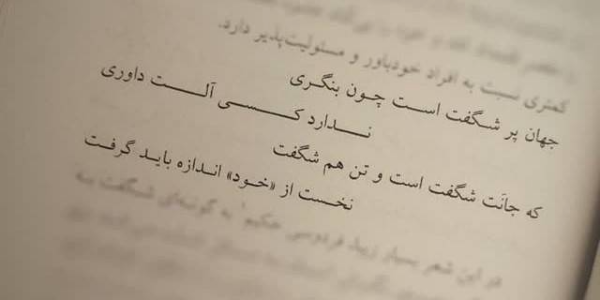 کمتری نسبت به افراد خودباور و مسئولیت‌پذیر دارد.
جهان پر شگفت است چون بنگری
ندارد کسی آلت داوری
که جانَت شگفت است و تن هم شگفت
نخست از «خود» اندازه باید گرفت
در این شعر بسیار زیبا، فردوسی حکیم' به گونه‌ای شگفت به